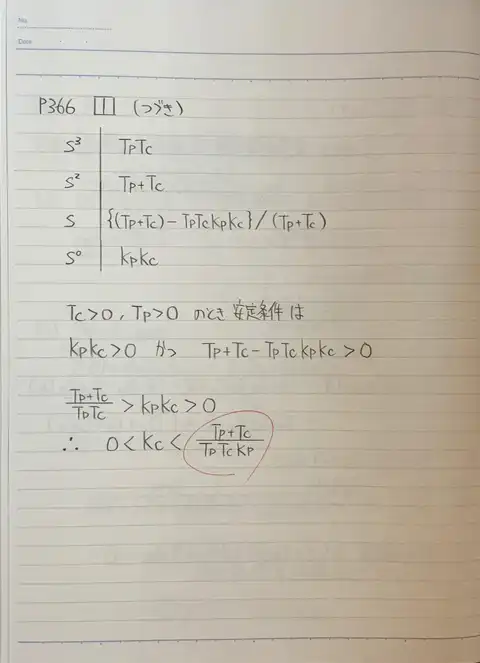 No.
Date
P366 □□ (つづき)
S³ | TpTc
S² | Tp+Tc
S | {(Tp+Tc)-TpTcKpKc}/(Tp+Tc)
S⁰ | KpKc
Tc>0, Tp>0 のとき 安定条件は
KpKc>0 かつ Tp+Tc-TpTcKpKc>0
Tp+Tc/TpTc > KpKc > 0
∴ 0<Kc< Tp+Tc/TpTcKp